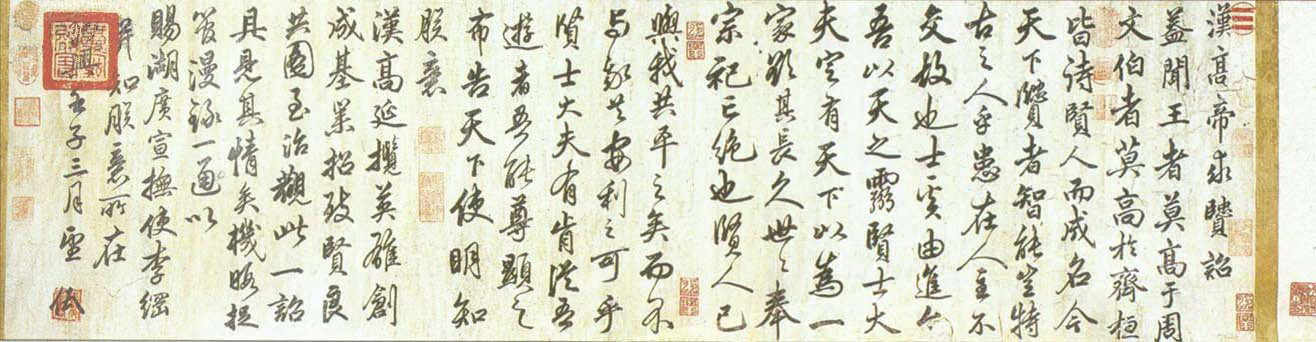 漢高帝求賢詔
蓋聞王者莫高于周
文伯者莫高於齊桓
皆待賢人而成名今
天下賢者智能豈特
古之人乎患在人主不
交故也士奚由進今
吾以天之靈賢士大
夫定有天下以為一
家欲其長久世々奉
宗祀亡絕也賢人已
與我共平之矣而不
与我共安利之可乎
賢士大夫有肯從吾
遊者吾能尊顯之
布告天下使明知
朕意
漢高延攬英雄創
成基業招致賢良
共圖至治觀此一詔
具見其情矣機暇捉
管漫錄一通以
賜湖廣宣撫使李綱
知朕意所在
壬子三月